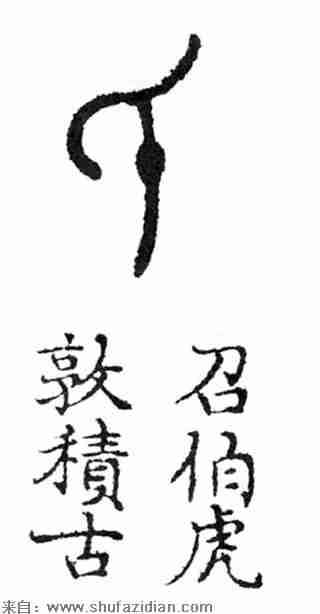 召伯虎
敦積古
来自：www.shufazidian.com